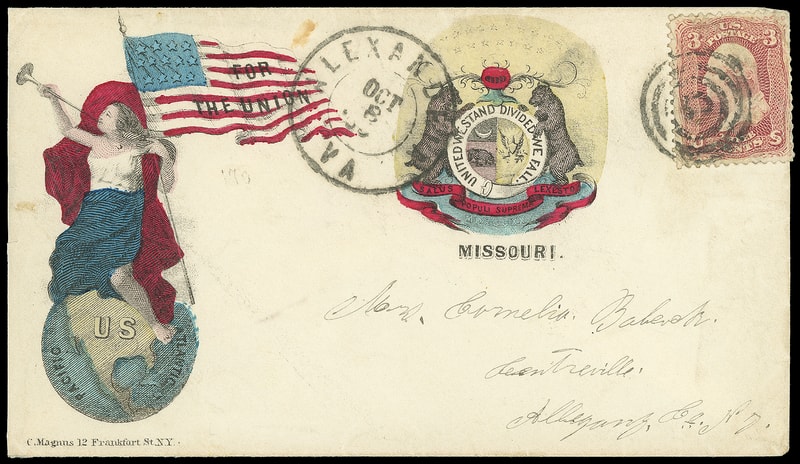 FOR
THE UNION
ALEXANDRIA
VA
OCT
8
U.S.
POSTAGE
3 3
CENTS
UNITED WE STAND DIVIDED WE FALL
SALUS
POPULI SUPREMA
LEX ESTO
MISSOURI.
Mrs. Cornelia Babcock.
Centreville.
Allegany, Co. N.Y.
US
PACIFIC
ATLANTIC
C. Magnus 12 Frankfurt St. N.Y.